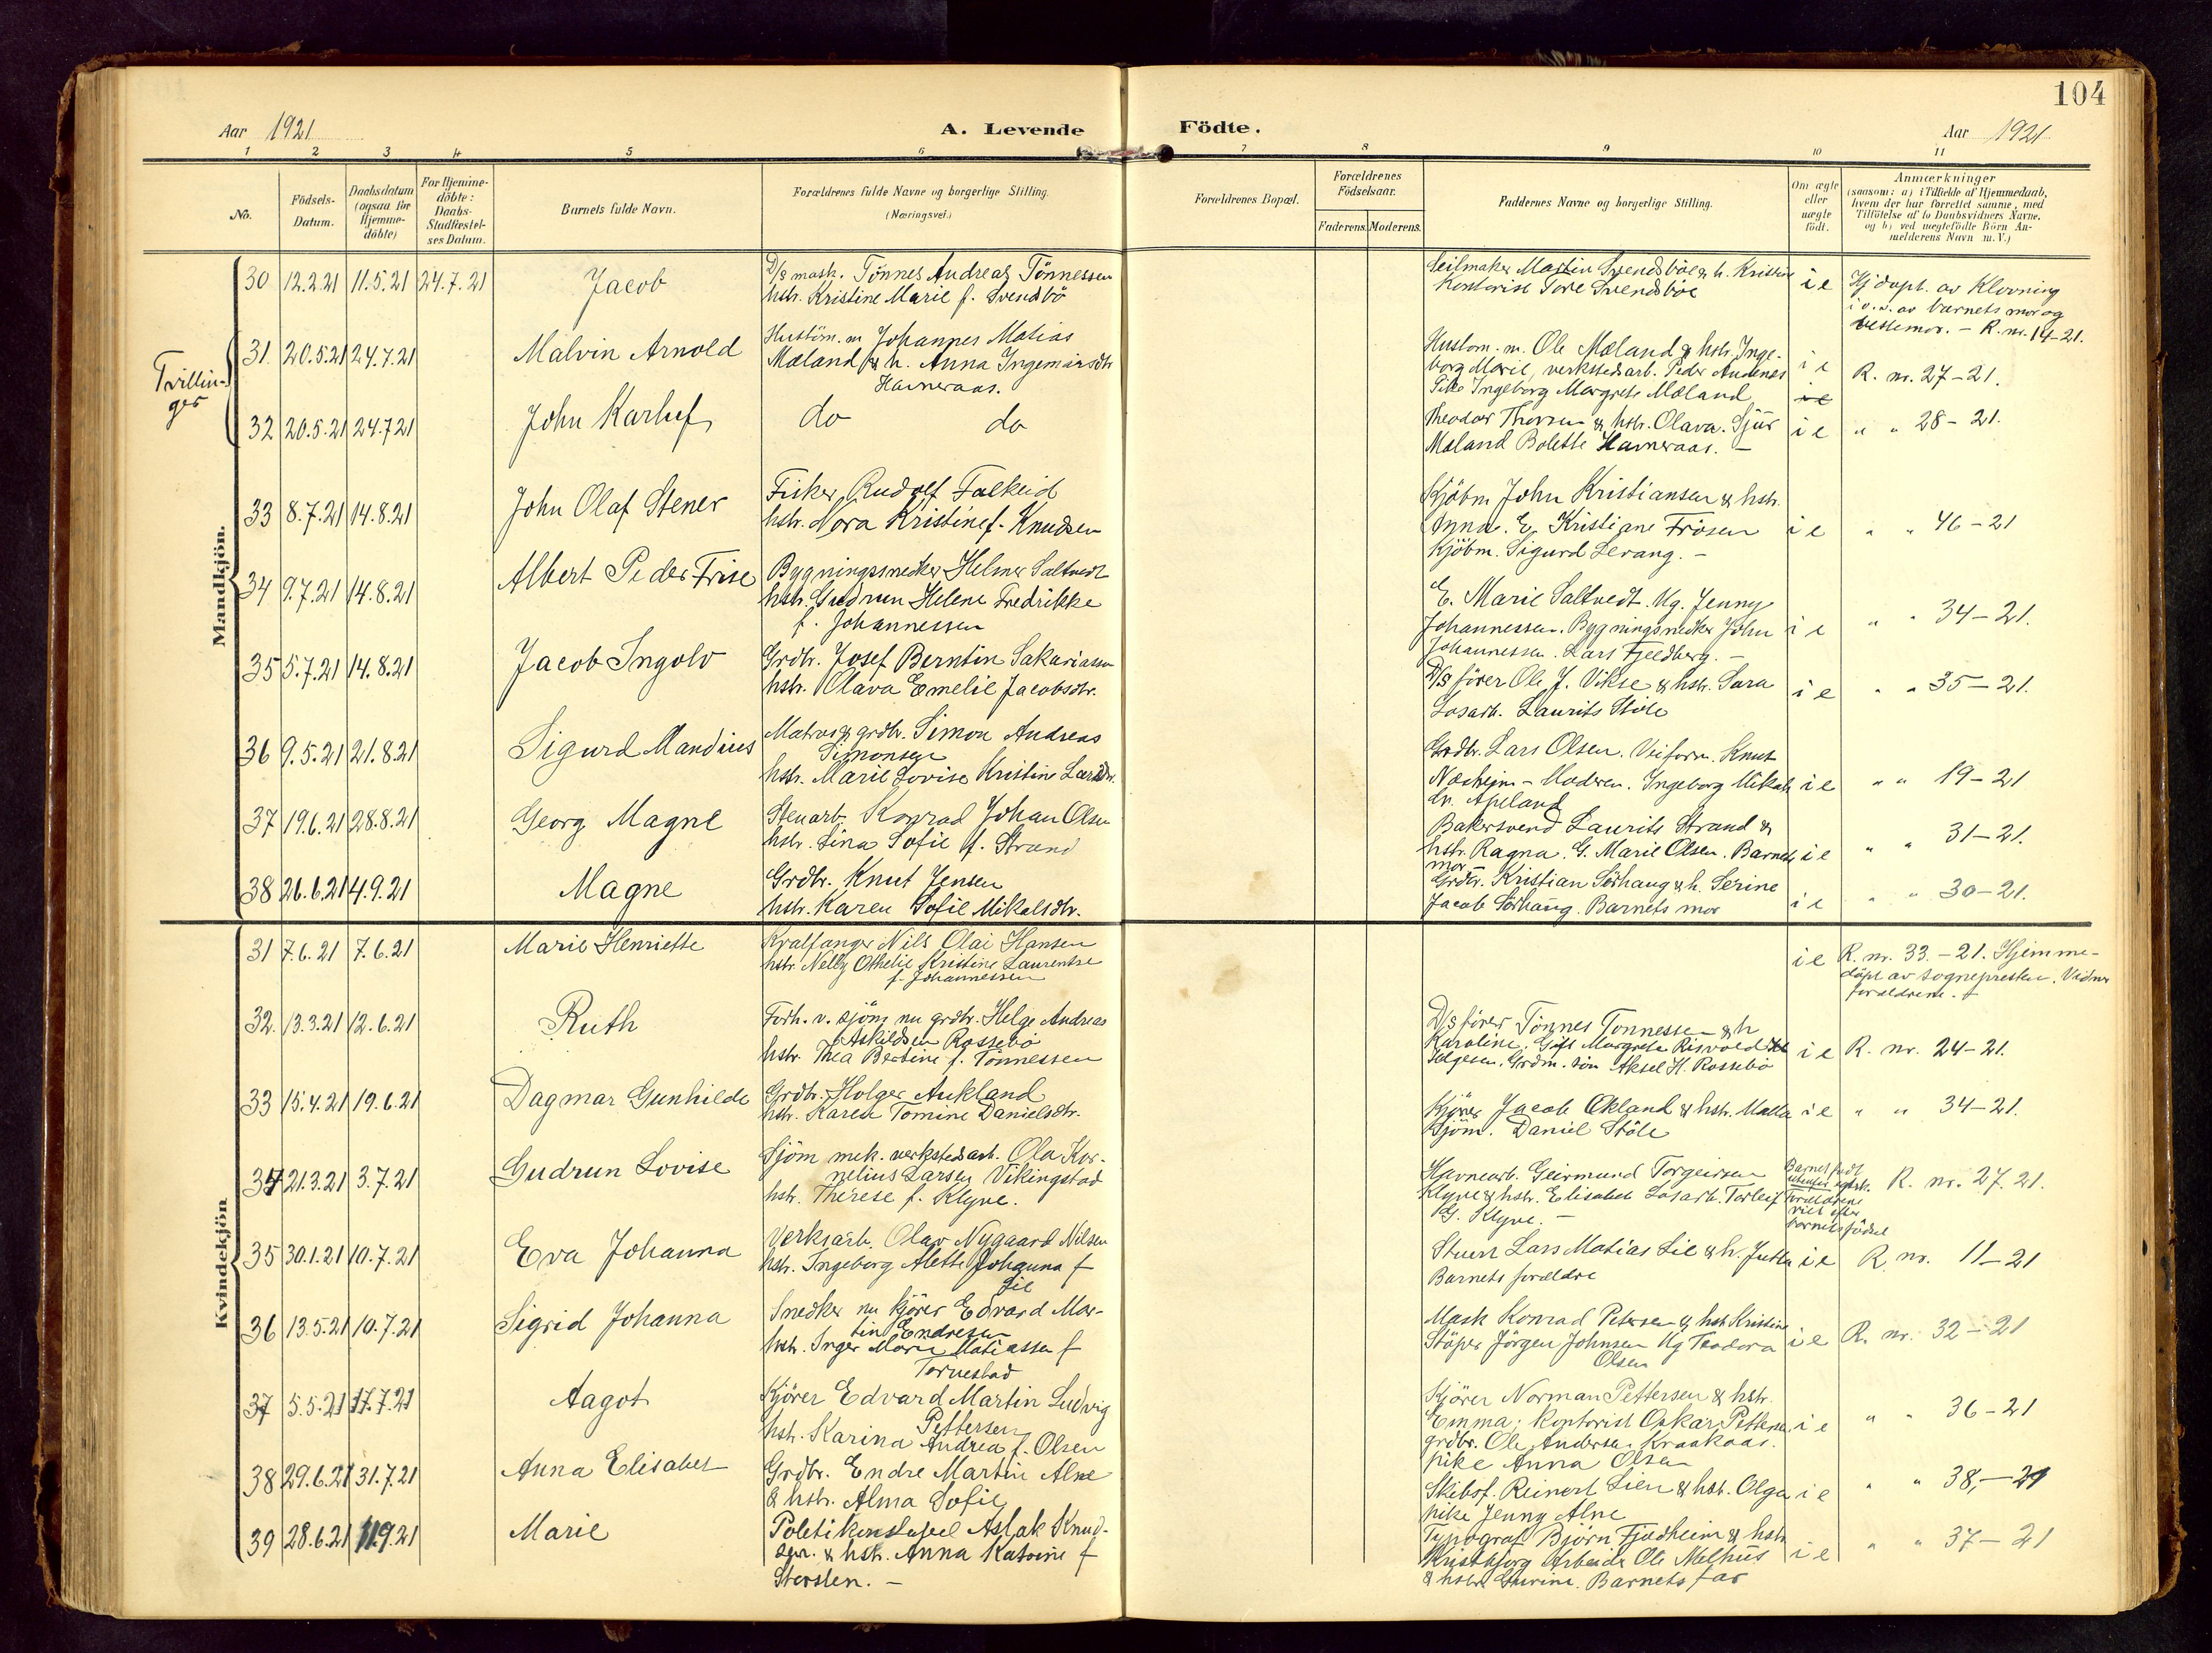 104
Aar 1921
A. Levende
Födte.
Aar 1921
1 2 3 4 5 6 7 8 9 10 11
No.
Födsels-
Datum.
Daabsdatum
(ogsaa for
Hjemme-
döbte)
For Hjemme-
döbte:
Daabs-
Stadfæstel-
ses Datum.
Barnets fulde Navn.
Forældrenes fulde Navne og borgerlige Stilling.
(Næringsvei.)
Forældrenes Bopæl.
Forældrenes
Födselsaar.
Faderens. Moderens.
Faddernes Navne og borgerlige Stilling.
Om ægte
eller
uægte
födt.
Anmærkninger
(saasom: a) i Tilfælde af Hjemmedaab,
hvem der har forrettet samme, med
Tilföielse af to Daabsvidners Navne,
og b) ved uægtefödte Börn An-
melderens Navn m. V.)
Mandkjön.
30 12.2.21 11.5.21 24.7.21 Jacob
D/s mask. Tönnes Andreas Tönnessen
hstr. Kristine Marie f. Svendbö
Seilmaker Martin Svendsböe & h. Kristine
Kontorist Tore Svendsböe
i e
Hj döpt. av Klovning
i o. s. av barnets mor og
bestemor. – R. nr. 14-21.
Tvillin-
ger
31 20.5.21 24.7.21 Malvin Arnold
Hustöm. m Johannes Matias
Mæland & h. Anna Ingemarsdtr
Hameraas.
Hustom. m. Ole Mæland & hstr. Inge-
borg Marie, verkstedsarb. Peder Audenes
Pike Ingeborg Margrete Mæland
i e
R. nr. 27-21.
32 20.5.21 24.7.21 John Karluf
do do
Theodor Thorsen & hstr. Olava. Sjur
Mæland Bolette Hameraas. –
i e
" " 28-21.
33 8.7.21 14.8.21 John Olaf Stener
Fisker Rudolf Falkeid
hstr. Nora Kristine f. Knudsen
Kjöbm John Kristiansen & hstr.
Anna. E. Kristiane Frösen
Kjöbm. Sigurd Lerang. –
i e
" " 46-21
34 9.7.21 14.8.21 Albert Peder Frise
Bygningssnedker Helmer Saltvedt
hstr. Gudrun Helene Fredrikke
f. Johannessen
E. Marie Saltvedt. Ug. Jenny
Johannessen. Bygningsnedker John
Johannessen. Lars Fjeldberg. –
i e
" " 34-21.
35 5.7.21 14.8.21 Jacob Ingolv
Grdbr. Josef Berntin Sakariassen
hstr. Olava Emelie Jacobsdtr.
D/S förer Ole J. Vikse & hstr. Sara
Losarb. Laurits Stöle
i e
" " 35-21.
36 9.5.21 21.8.21 Sigurd Mandius
Matros & grdbr. Simon Andreas
Simonsen
hstr. Marie Lovise Kristin Larsdtr.
Grdbr. Lars Olsen. Veiform. Knut
Næsheim – Moderen. Ingeborg Mikals
dr. Apeland
i e
" " 19-21
37 19.6.21 28.8.21 Georg Magne
Stenarb. Konrad Johan Olsen
hstr. Lina Sofie f. Strand
Bakersvend Laurits Strand &
hstr. Ragna. G. Marie Olsen. Barnets
mor –
i e
" " 31-21.
38 26.6.21 4.9.21 Magne
Grdbr. Knut Jensen
hstr. Karen Sofie Mikalsdtr.
Grdbr. Kristian Sörhaug & h. Serine
Jacob Sörhaug. Barnets mor
i e
" " 30-21.
Kvindekjön
31 7.6.21 7.6.21 Marie Henriette
Kvalfanger Nils Olai Hansen
hstr. Nelly Othelie Kristine Laurentse
f. Johannessen
i e
R. nr. 33.-21. Hjemme-
döpt av sognepresten. Vidner
forældrene. †
32. 13.3.21 12.6.21 Ruth
Forh. v. sjöm nu grdbr. Helge Andreas
Askildsen Rossebö
hstr. Thea Bertine f. Tönnessen
D/s förer Tönnes Tonnessen & h
Karoline. Gift Margrete Risvold
Helgesen. Grdm. sön Aksel H. Rossebö
i e
R. nr. 24-21.
33 15.4.21 19.6.21 Dagmar Gunhilde
Grdbr. Holger Aukland
hstr. Karen Tomine Danielsdtr.
Kjörer Jacob Økland & hstr. Malla
Sjöm. Daniel Stöle
i e
" " 34-21.
34 21.3.21 3.7.21 Gudrun Lovise
Sjöm mek. verkstedsarb. Ola Kor-
nelius Larsen Vikingstad
hstr. Therese f. Klyve.
Havnearb. Geirmund Torgeirsen
Klyve & hstr. Elisabet Losarb. Torleif
G. Klyve. –
Barnet födt
utenfor egtsk.
Forældrene
viet efter
barnets födsel
R. nr. 27.21.
35 30.1.21 10.7.21 Eva Johanna
Verksarb. Olav Nygaard Nilsen
hstr. Ingeborg Alette Johanna f
Lie
Stuert Lars Matias Lie & h. Jutta
Barnets forældre
i e
R. nr. 11-21
36 13.5.21 10.7.21 Sigrid Johanna
Snedker nu kjörer Edvard Mar-
tin Endresen
hstr. Inger Marie Matiassen f
Torvestad
Mask Konrad Petersen & hstr Kristine
Stöper Jörgen Johnsen Ug Teodora
Olsen
i e
R. nr. 32-21
37 5.5.21 17.7.21 Aagot
Kjörer Edvard Martin Ludvig
Pettersen
hstr. Karina Andrea f. Olsen
Kjörer Norman Pettersen & hstr.
Emma; Kontorist Oskar Pettersen
grdbr. Ole Andersen Kraakaas.
pike Anna Olsen
i e
" " 36-21
38 29.6.21 31.7.21 Anna Elisabet
Grdbr. Endre Martin Alne
& hstr. Alma Sofie
Skibsf. Reinert Lien & hstr. Olga
pike Jenny Alne
i e
" " 38,-21
39 28.6.21 11.9.21 Marie
Politikonstabel Aslak Knud-
sen. & hstr. Anna Katrine f
Storslen. –
Typograf Björn Fjedheim & hstr
Kristbjorg Arbeider Ole Melhus
& hstr. Gurine. Barnets far
i e
" " 37-21